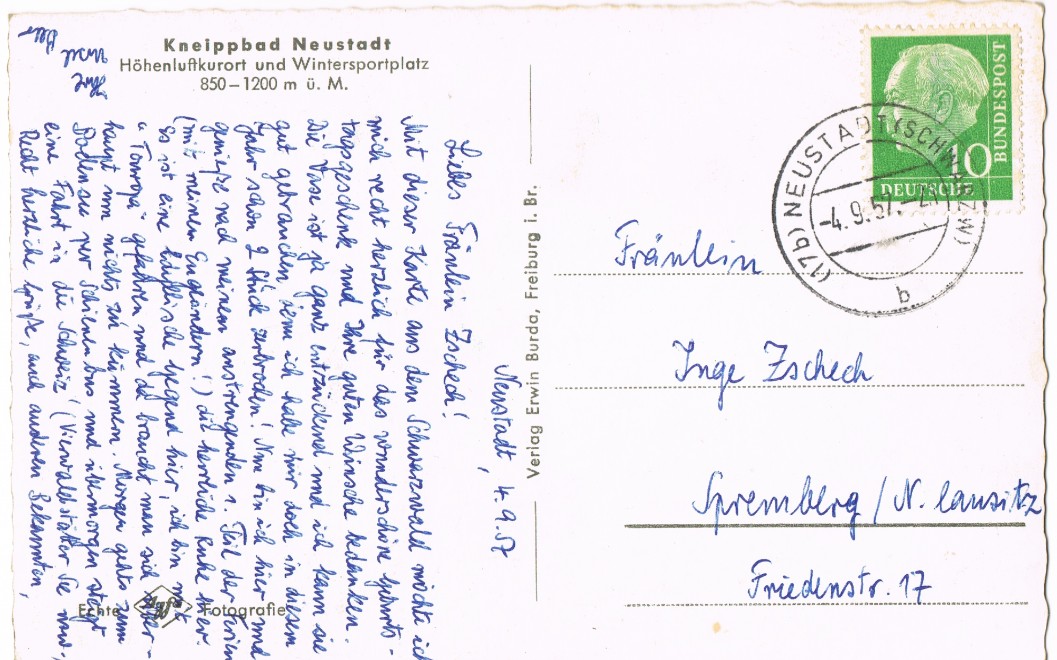 Kneippbad Neustadt
Höhenluftkurort und Wintersportplatz
850–1200 m ü. M.
Neustadt, 4.9.57
Liebes Fräulein Zschech!
Mit dieser Karte aus dem Schwarzwald möchte ich
mich recht herzlich für das wunderschöne Geburts-
tagsgeschenk und Ihre guten Wünsche bedanken.
Die Vase ist ja ganz entzückend und ich kann sie
gut gebrauchen, denn ich habe mir doch in diesem
Jahr schon 2 Stück zerbrochen! Nun bin ich hier und
genieße nach meinem anstrengenden 1. Teil der Ferien
(mit meinen Engländern!) die herrliche Ruhe hier.
Es ist eine hübsche Gegend hier, ich bin mit
"Touropa" gefahren und da braucht man sich über-
haupt um nichts zu kümmern. Morgen gehts zum
Bodensee per Schienenbus und übermorgen steigt
eine Fahrt in die Schweiz! (Vierwaldstätter See usw.,
Recht herzliche Grüße, auch anderen Bekannten,
Ihre
Echte Agfa Fotografie
Verlag Erwin Burda, Freiburg i. Br.
DEUTSCHE
BUNDESPOST
10
(17b) NEUSTADT (SCHWARZW)
-4.9.57.-21
b
Fräulein
Inge Zschech
Spremberg / N. Lausitz
Friedenstr. 17